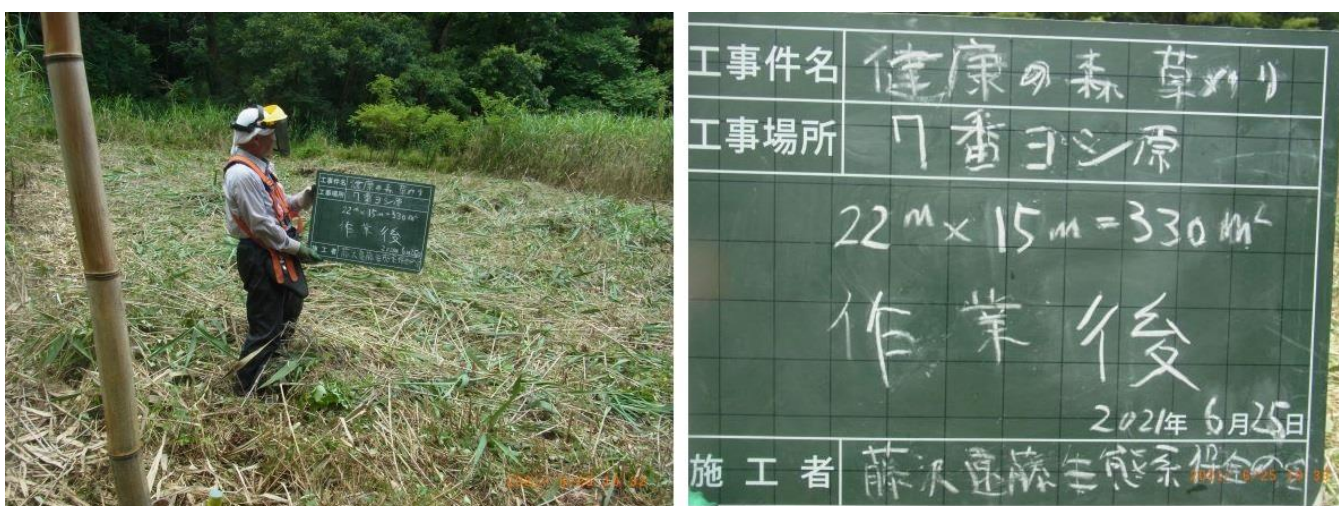 工事件名 健康の森 草刈り
工事場所 7番ヨシ原
22m×15m=330m²
作業後
施工者
工事件名 健康の森 草刈り
工事場所 7番ヨシ原
22m×15m=330m²
作業後
2021年 6月25日
施工者 藤沢遠藤生態系保全の